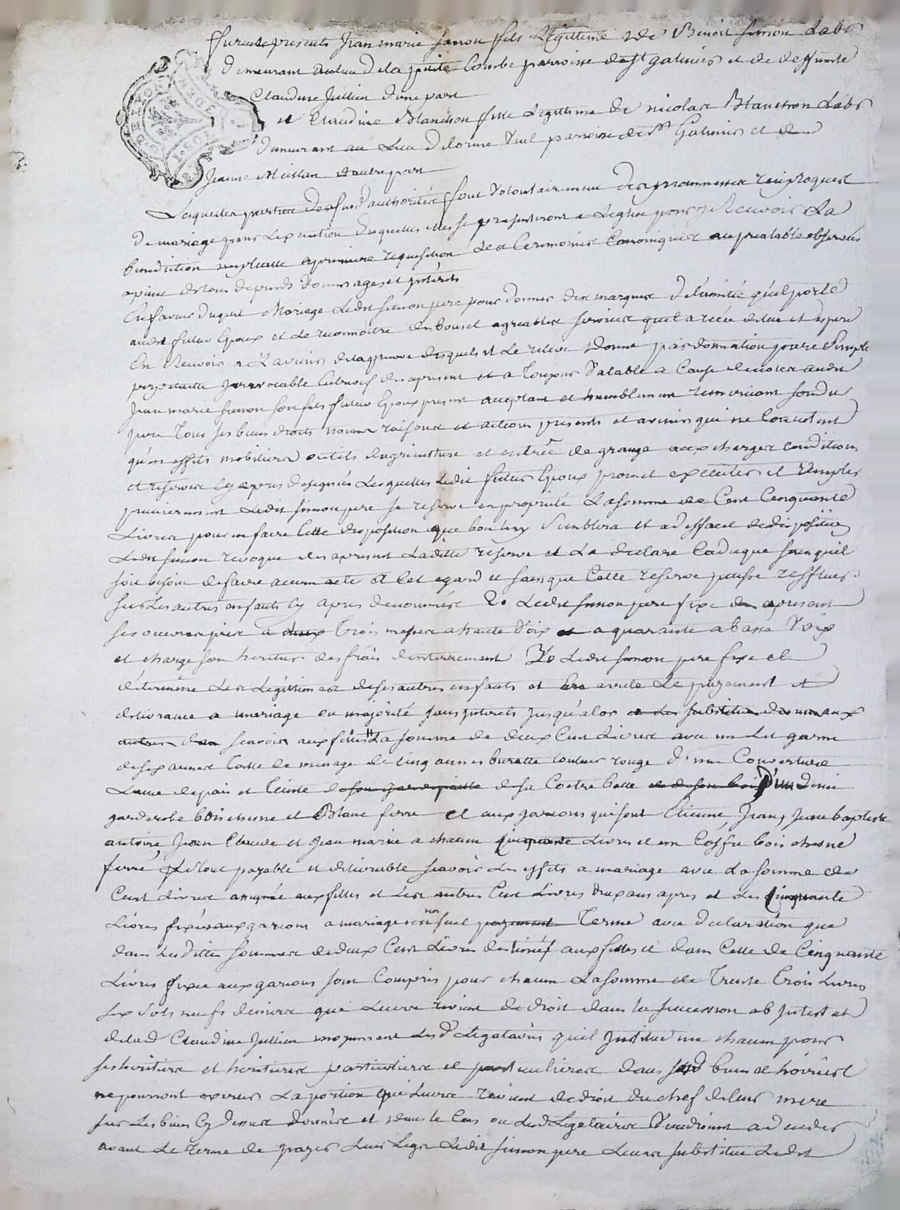 furent presents Jean marie simon fils Légittime de Benoit simon Labr
demeurant au lieu de la petite Combe parroisse de st galmier et de deffunte
Claudine Jullien d'une part
et Claudine Blanchon fille Légitime de nicolas Blanchon Labr
demeurant au Lieu de lorme parroisse de St Galmier et de
Jeanne d'autre part
Lesquelles parties de sus d'authorités font Volontairement des promesses reciproques
de mariage pour L'execution desquelles elles se presenteront a L'eglise pour y Recevoir La
benediction nuptialle a premiere requisition Les Ceremonies Canoniques au prealable observées
a peine de tous depends dommages et intérêts
En faveur duquel Mariage Ledit simon pere pour donner des marques de L'amitié qu'il porte
audit futur Epoux et Le reconnoitre des bons et agreables services qu'il a reçu de lui et espere
En Recevoir a L'avenir de la preuve desquels il Le releve donne par donnation pure Simple
perpetuelle irrevocable a present et a Toujours Valable a Cause de noces audit
Jean marie simon son fils futur Epoux present acceptant et humblement remerciant sondit
pere Tous ses biens droits noms raisons et actions presents et avenirs qui ne Consistent
qu'en effits mobiliers outils d'agriculture et de grange aux charges Conditions
et reserves Cy apres designés Lesquelles Ledit futur Epoux promet executer et remplir
premierement Ledit simon pere se reserve en propriété La somme de Cent Cinquante
Livres pour en faire Cette disposition que bon luy Semblera et a deffaut de disposition
Ledit simon revoque des apresent Ladite reserve et La declare Caduque sans quil
soit besoin de faire aucun acte a Cet egard et sans que Cette reserve puisse reffluer
sur Les autres enfants Cy apres denommés 2o Ledit simon pere fixe des apresent
ses œuvres pies a deux trois messes a haute Voix et a quarante a basse Voix
et charge son heritier des frais d'enterrement 3o Ledit simon pere fixe et
determine Les Légitimes de ses autres enfants et en arrete Le payement et
delivrance a mariage ou majorité sans interets jusqu'alors
autres scavoir aux filles La somme de deux Cent Livres avec un Lit garni
de ses aunes toille de menage de Cinq aunes buratte Couleur rouge d'une Couverture
Laine de pais et de sa Contre bette d'un demi
garderobe bois chene et Blanc ferré et aux garçons qui sont Etienne, Jean, Jean baptiste
antoine, Jean Claude et Jean marie a chacun Cinquante Livres et un Coffre bois chesne
ferré, Le tout payable et delivrable scavoir Les effits a mariage avec La somme de
Cent Livres aux filles et Les autres Cent Livres deux ans apres et Les Cinquante
Livres fixés aux garçons a mariage un seul payement Terme avec declaration que
dans Lesdittes sommes de deux Cent Livres destinées aux filles et dans Celle de Cinquante
Livres fixée aux garçons sont Compris pour chacun La somme de Trente Trois Livres
six sols neufs deniers que Leur revient de droit dans la succession ab intestat
de lad Claudine Jullien moyennant Les d Legataires qu'il Institue un chacun pour
ses heritiers et heritieres particuliers et particulieres dans sesd biens et hoiries
ne pourront exercer La portion qui Leur revient de droit du chef de leur mere
sur Les biens Cy dessus donnés et dans le Cas ou Lesd Legataires Viendroient a deceder
avant Le Terme de payer Leurs Legs Ledit simon pere Leurs substitue Ledit